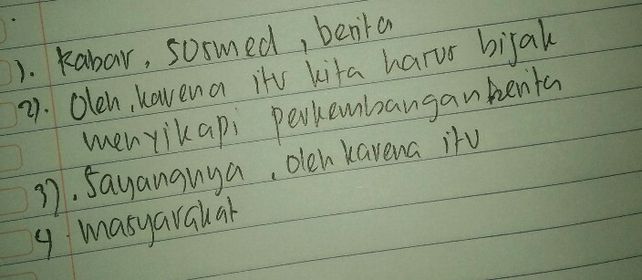 1). Kabar, sosmed, berita
2). Oleh, karena itu kita harus bijak
menyikapi perkembangan berita
3). Sayangnya, oleh karena itu
4 masyarakat